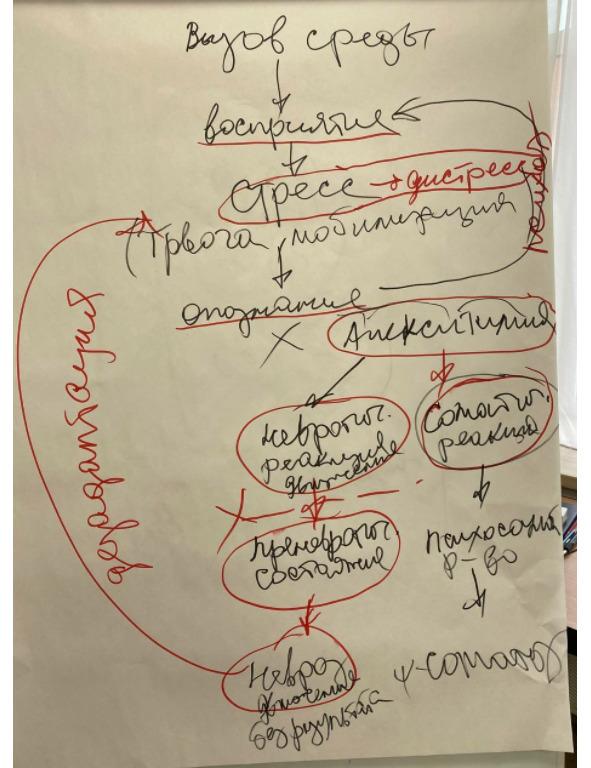 Вызов среды
восприятие
Стресс → дистресс
(Тревога, мобилизация
опознание
Алекситимия
Невротич.
реакция
движение
Соматич.
реакция
преневротич.
состояние
психосомат
р-во
Невроз
движение
без рузульта
ψ-соматоз
дезадаптация